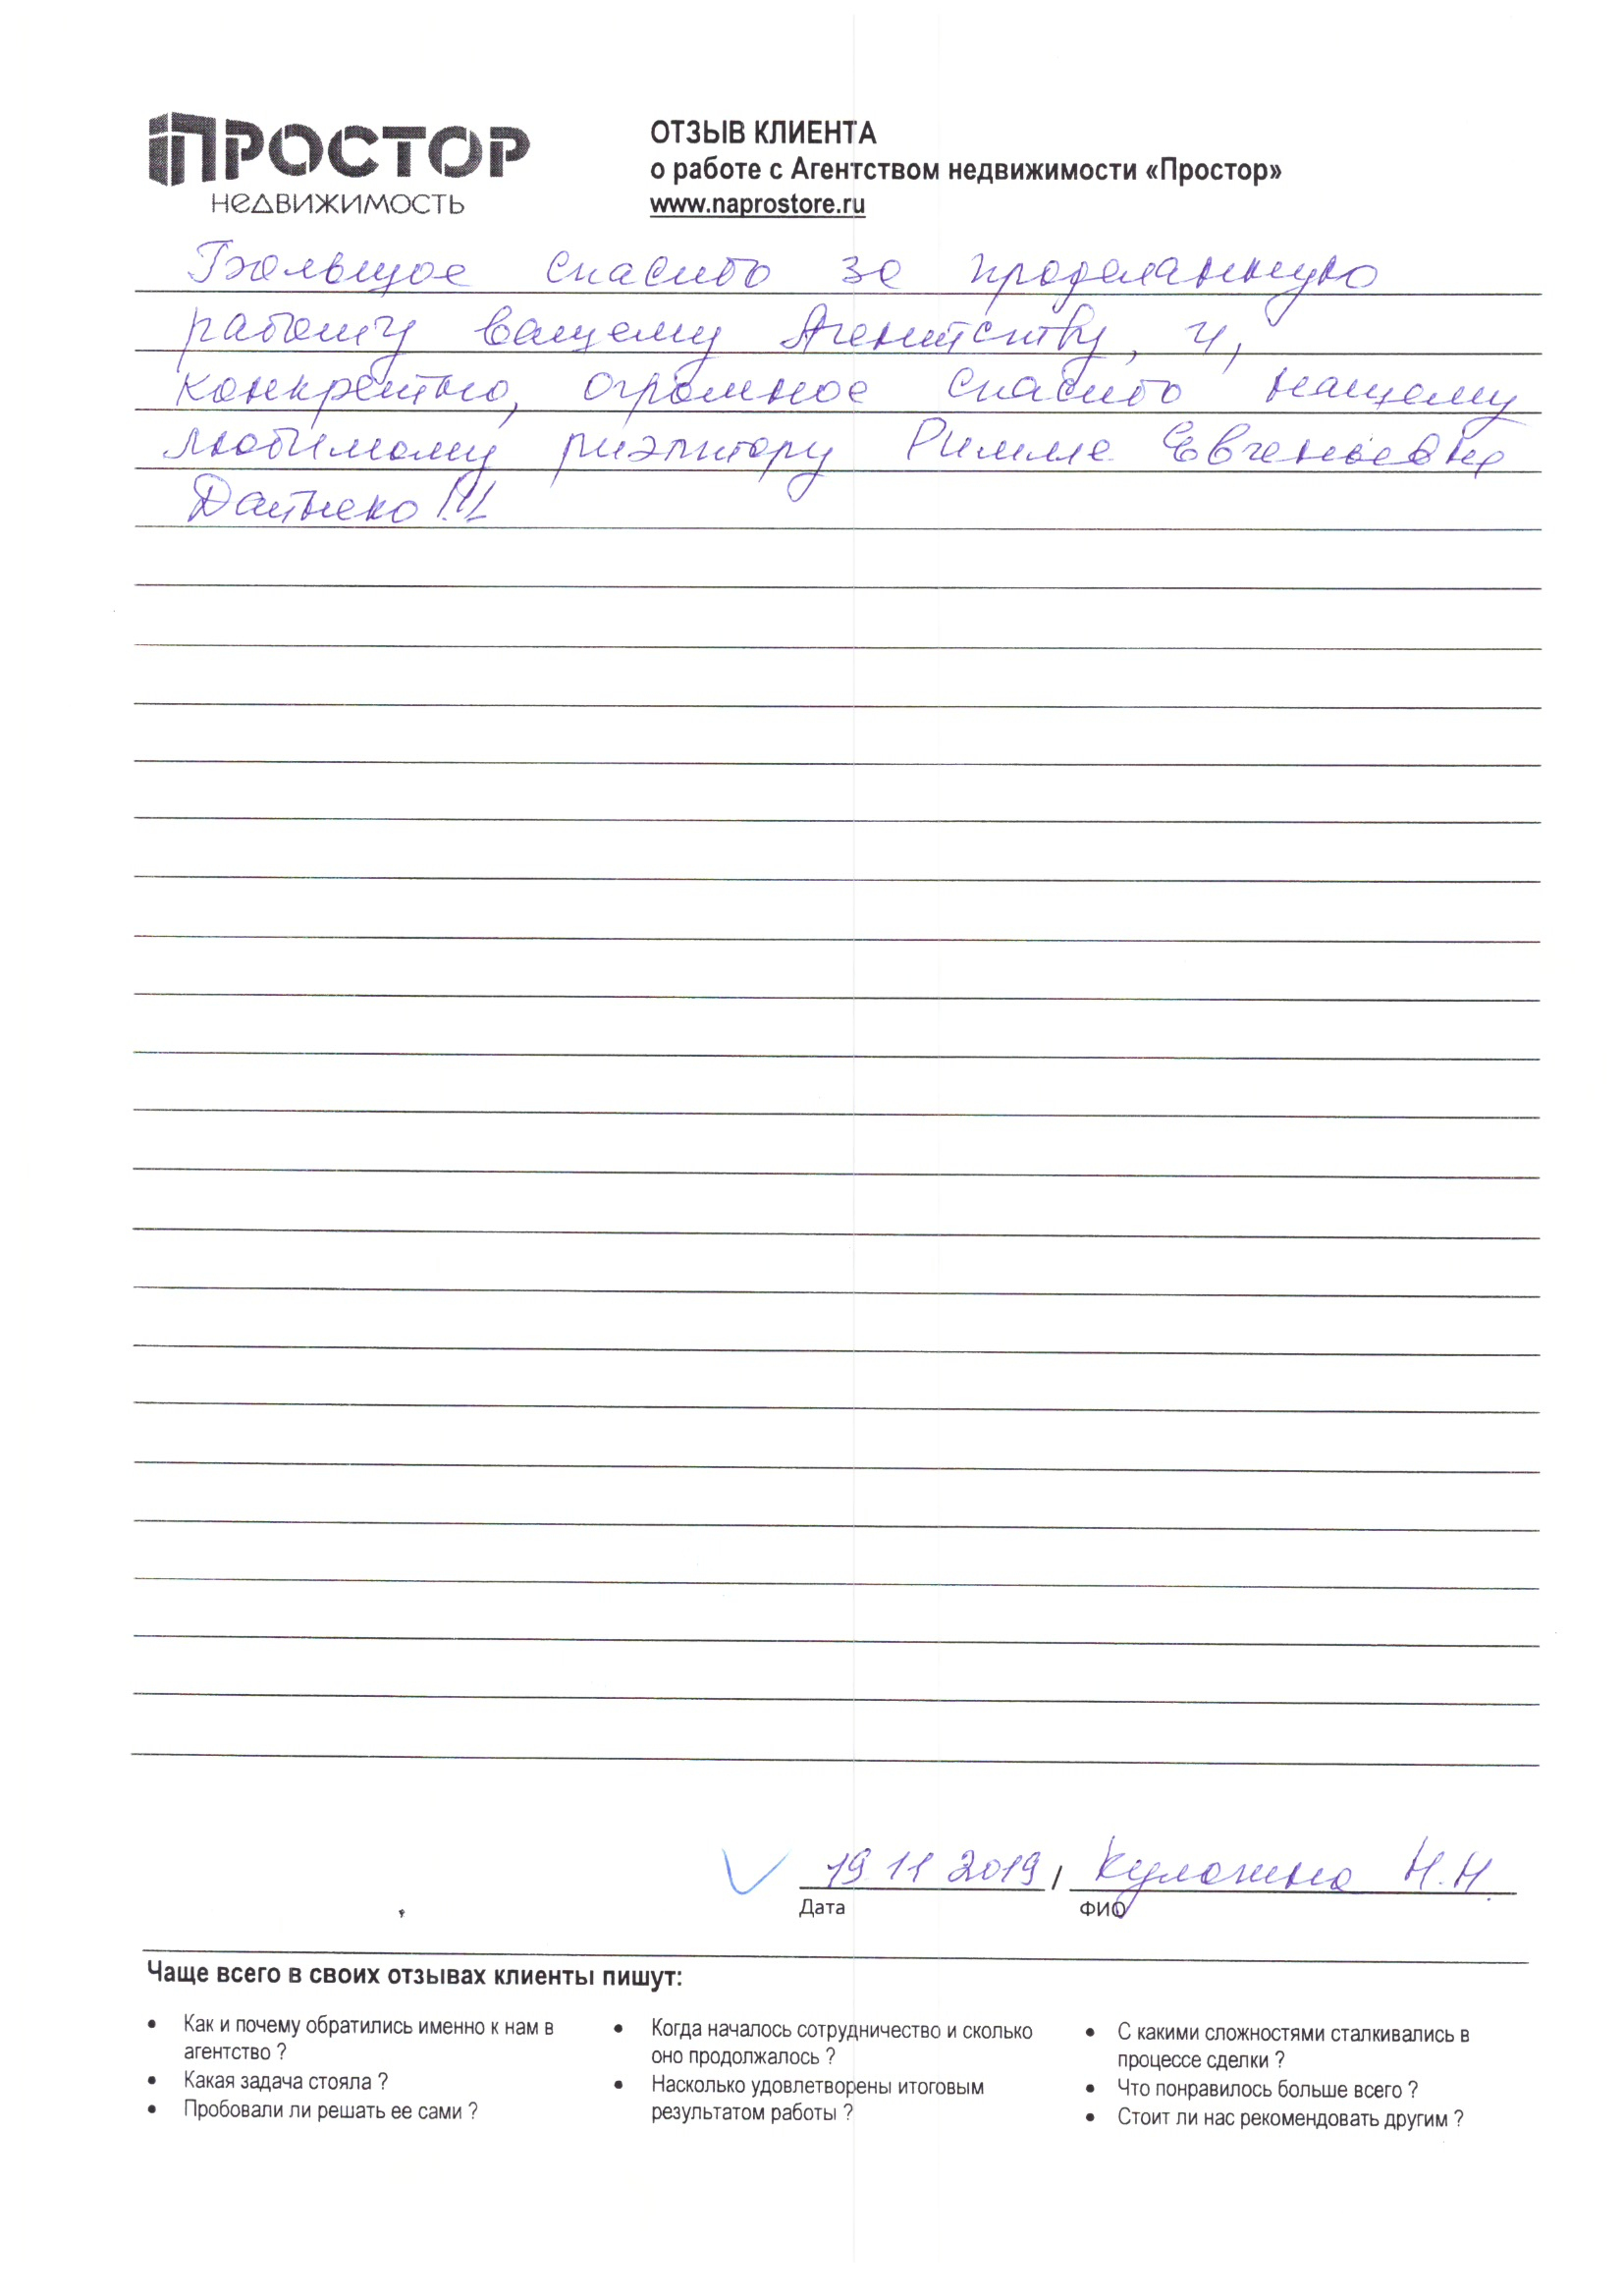 ПРОСТОР
НЕДВИЖИМОСТЬ
ОТЗЫВ КЛИЕНТА
о работе с Агентством недвижимости «Простор»
www.naprostore.ru
Большое спасибо за проделанную
работу вашему Агентству, и,
конкретно, огромное спасибо нашему
любимому риэлтору Римме Евгеньевне
Дайнеко!!!
19 11 2019 / Кулагина Н.Н.
Дата
ФИО
Чаще всего в своих отзывах клиенты пишут:
• Как и почему обратились именно к нам в
агентство ?
• Какая задача стояла ?
• Пробовали ли решать ее сами ?
• Когда началось сотрудничество и сколько
оно продолжалось ?
• Насколько удовлетворены итоговым
результатом работы ?
• С какими сложностями сталкивались в
процессе сделки ?
• Что понравилось больше всего ?
• Стоит ли нас рекомендовать другим ?